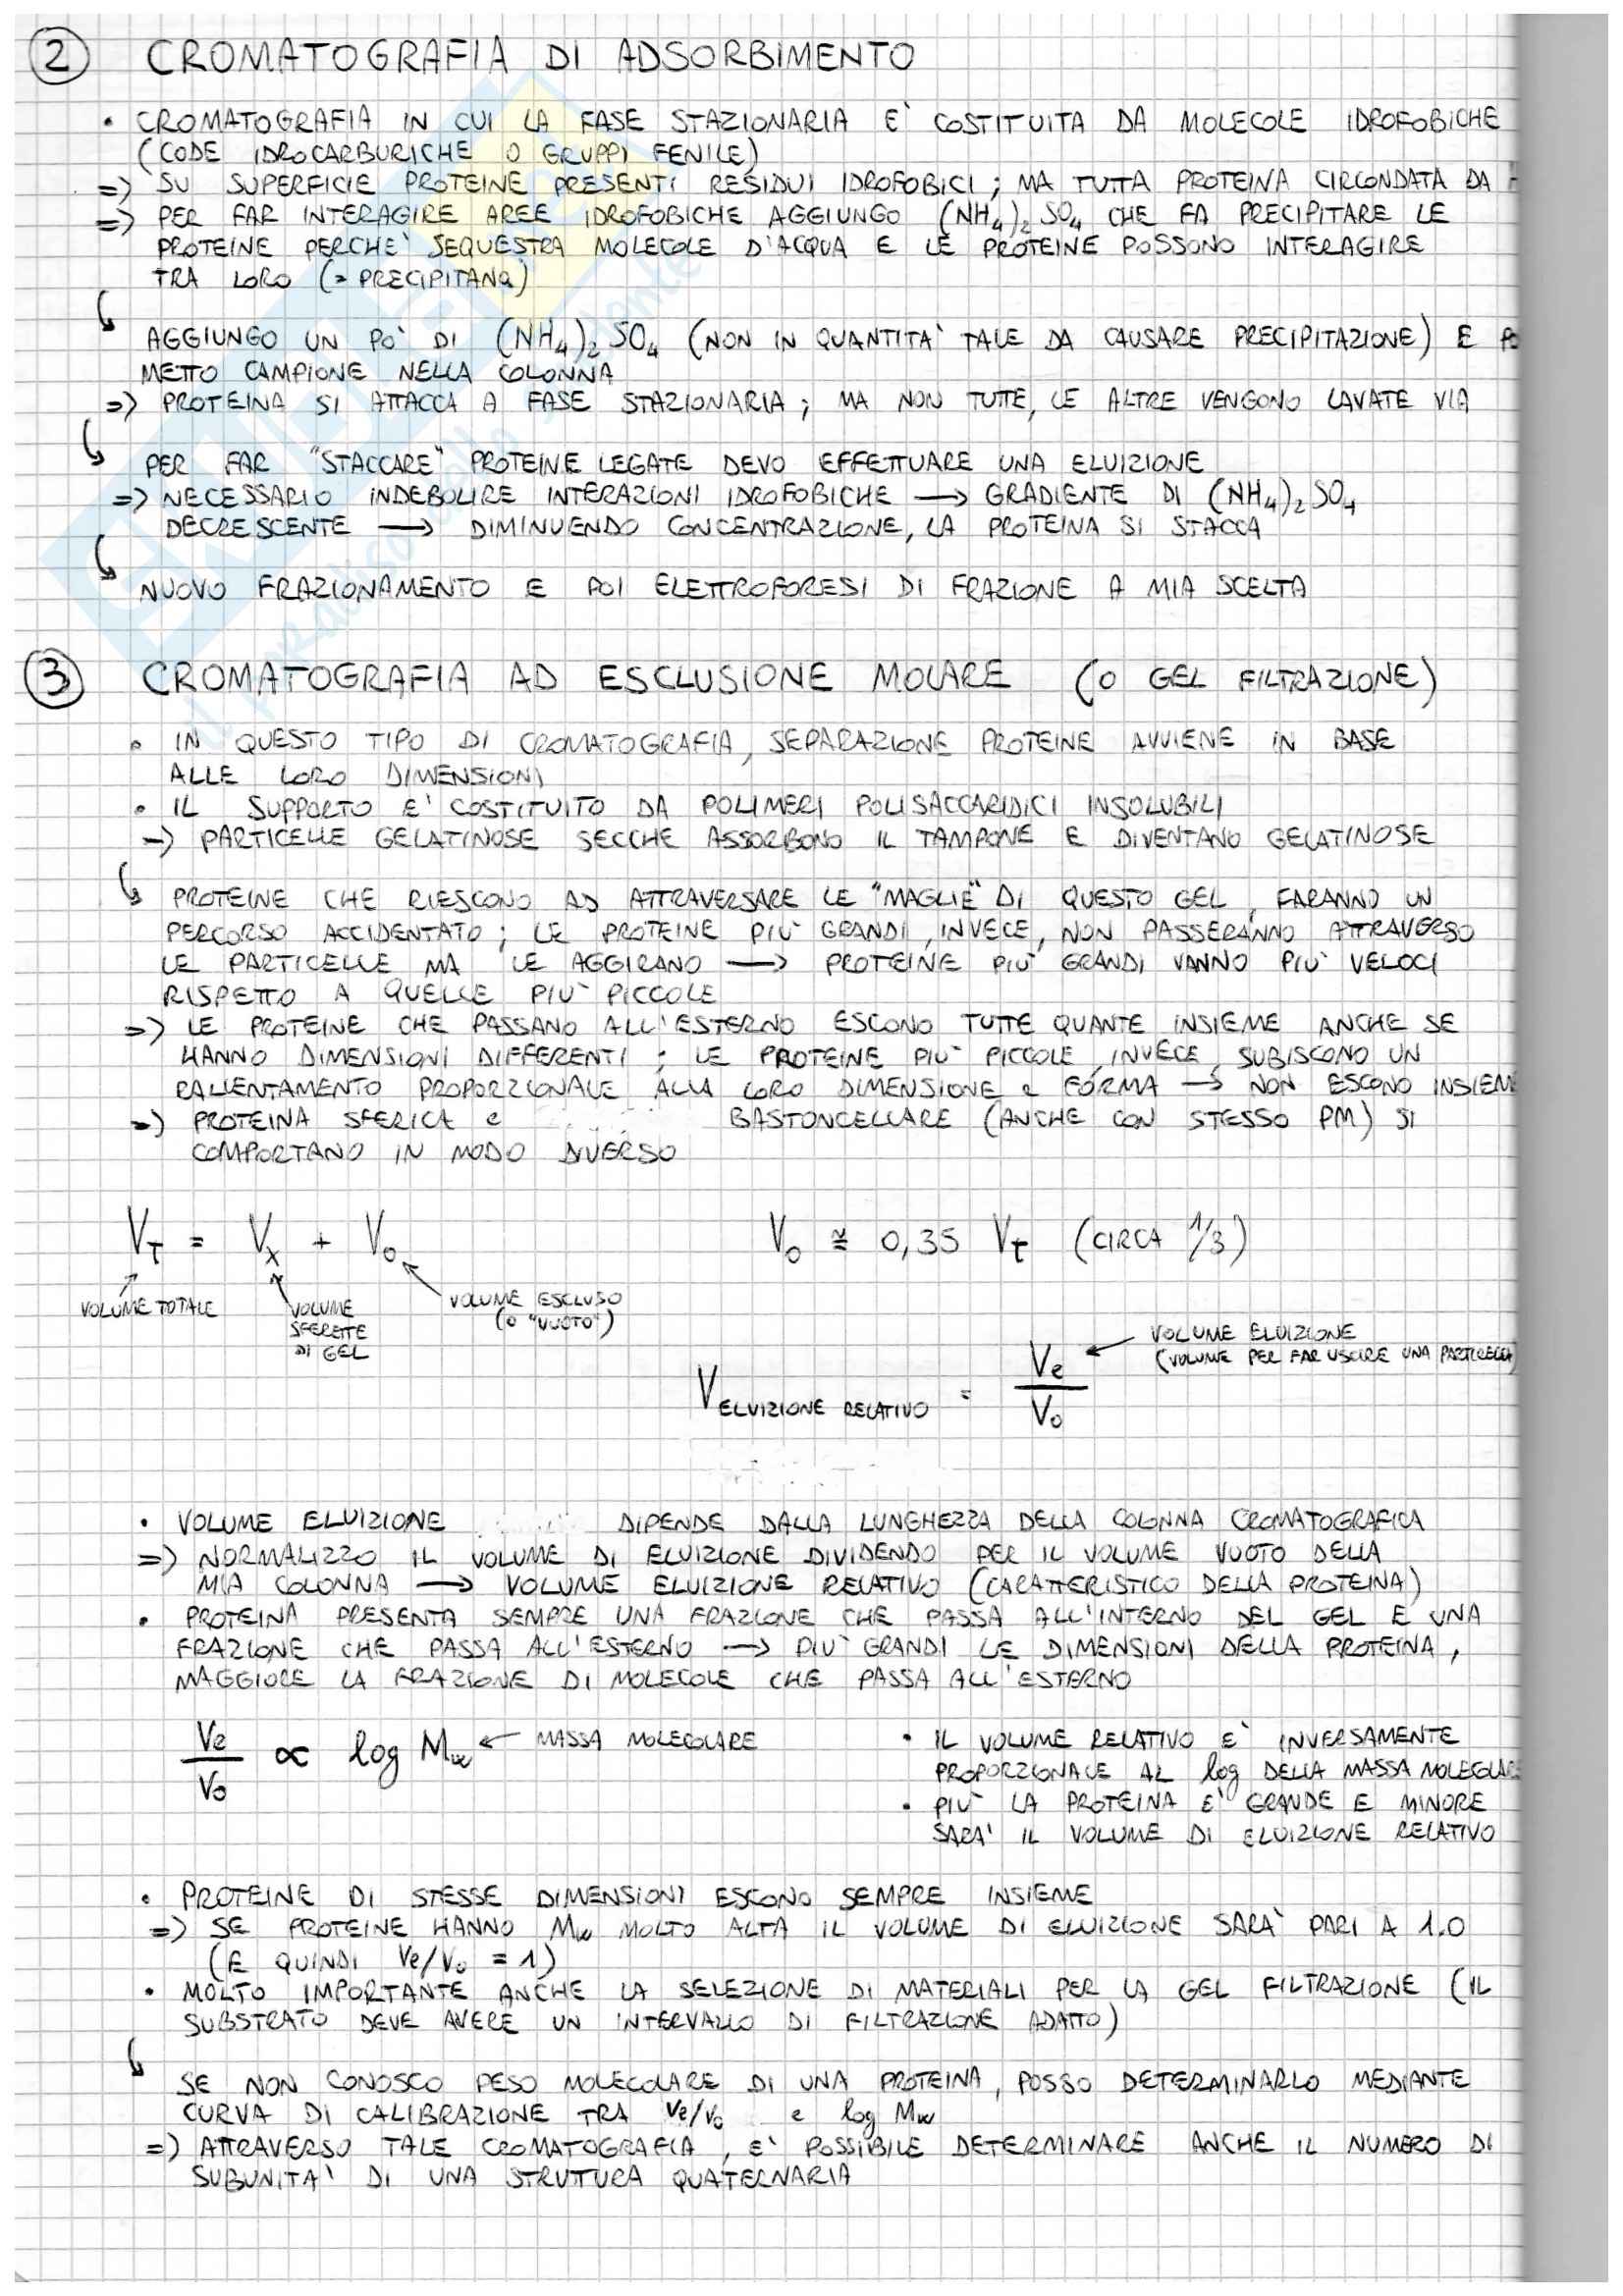 2 CROMATOGRAFIA DI ADSORBIMENTO
• CROMATOGRAFIA IN CUI LA FASE STAZIONARIA E' COSTITUITA DA MOLECOLE IDROFOBICHE
(CODE IDROCARBURICHE O GRUPPI FENILE)
=> SU SUPERFICIE PROTEINE PRESENTI RESIDUI IDROFOBICI; MA TUTTA PROTEINA CIRCONDATA DA
=> PER FAR INTERAGIRE AREE IDROFOBICHE AGGIUNGO (NH4)2 SO4 CHE FA PRECIPITARE LE
PROTEINE PERCHE' SEQUESTRA MOLECOLE D'ACQUA E LE PROTEINE POSSONO INTERAGIRE
TRA LORO (= PRECIPITANO)
↳ AGGIUNGO UN PO' DI (NH4)2 SO4 (NON IN QUANTITA' TALE DA CAUSARE PRECIPITAZIONE) E PO
METTO CAMPIONE NELLA COLONNA
=> PROTEINA SI ATTACCA A FASE STAZIONARIA; MA NON TUTTE, LE ALTRE VENGONO LAVATE VIA
↳ PER FAR "STACCARE" PROTEINE LEGATE DEVO EFFETTUARE UNA ELUIZIONE
=> NECESSARIO INDEBOLIRE INTERAZIONI IDROFOBICHE → GRADIENTE DI (NH4)2 SO4
DECRESCENTE → DIMINUENDO CONCENTRAZIONE, LA PROTEINA SI STACCA
↳ NUOVO FRAZIONAMENTO E POI ELETTROFORESI DI FRAZIONE A MIA SCELTA
3 CROMATOGRAFIA AD ESCLUSIONE MOLARE (O GEL FILTRAZIONE)
• IN QUESTO TIPO DI CROMATOGRAFIA, SEPARAZIONE PROTEINE AVVIENE IN BASE
ALLE LORO DIMENSIONI
• IL SUPPORTO E' COSTITUITO DA POLIMERI POLISACCARIDICI INSOLUBILI
→ PARTICELLE GELATINOSE SECCHE ASSORBONO IL TAMPONE E DIVENTANO GELATINOSE
↳ PROTEINE CHE RIESCONO AD ATTRAVERSARE LE "MAGLIE" DI QUESTO GEL, FARANNO UN
PERCORSO ACCIDENTATO; LE PROTEINE PIU' GRANDI, INVECE, NON PASSERANNO ATTRAVERSO
LE PARTICELLE MA LE AGGIRANO → PROTEINE PIU' GRANDI VANNO PIU' VELOCI
RISPETTO A QUELLE PIU' PICCOLE
=> LE PROTEINE CHE PASSANO ALL'ESTERNO ESCONO TUTTE QUANTE INSIEME ANCHE SE
HANNO DIMENSIONI DIFFERENTI; LE PROTEINE PIU' PICCOLE, INVECE, SUBISCONO UN
RALLENTAMENTO PROPORZIONALE ALLA LORO DIMENSIONE e FORMA → NON ESCONO INSIEME
=> PROTEINA SFERICA e BASTONCELLARE (ANCHE CON STESSO PM) SI
COMPORTANO IN MODO DIVERSO
VT = Vx + Vo
Vo ≅ 0,35 Vt (CIRCA 1/3)
VOLUME TOTALE
VOLUME SFERETTE DI GEL
VOLUME ESCLUSO (O "VUOTO")
V ELUIZIONE RELATIVO = Ve/Vo
VOLUME ELUIZIONE
(VOLUME PER FAR USCIRE UNA PARTICELLA)
• VOLUME ELUIZIONE DIPENDE DALLA LUNGHEZZA DELLA COLONNA CROMATOGRAFICA
=> NORMALIZZO IL VOLUME DI ELUIZIONE DIVIDENDO PER IL VOLUME VUOTO DELLA
MIA COLONNA → VOLUME ELUIZIONE RELATIVO (CARATTERISTICO DELLA PROTEINA)
• PROTEINA PRESENTA SEMPRE UNA FRAZIONE CHE PASSA ALL'INTERNO DEL GEL E UNA
FRAZIONE CHE PASSA ALL'ESTERNO → PIU' GRANDI LE DIMENSIONI DELLA PROTEINA,
MAGGIORE LA FRAZIONE DI MOLECOLE CHE PASSA ALL'ESTERNO
Ve/Vo ∝ log Mw ← MASSA MOLECOLARE
• IL VOLUME RELATIVO E' INVERSAMENTE
PROPORZIONALE AL log DELLA MASSA MOLECOLARE
• PIU' LA PROTEINA E' GRANDE E MINORE
SARA' IL VOLUME DI ELUIZIONE RELATIVO
• PROTEINE DI STESSE DIMENSIONI ESCONO SEMPRE INSIEME
=> SE PROTEINE HANNO Mw MOLTO ALTA IL VOLUME DI ELUIZIONE SARA' PARI A 1.0
(E QUINDI Ve/Vo = 1)
• MOLTO IMPORTANTE ANCHE LA SELEZIONE DI MATERIALI PER LA GEL FILTRAZIONE (IL
SUBSTRATO DEVE AVERE UN INTERVALLO DI FILTRAZIONE ADATTO)
↳ SE NON CONOSCO PESO MOLECOLARE DI UNA PROTEINA, POSSO DETERMINARLO MEDIANTE
CURVA DI CALIBRAZIONE TRA Ve/Vo e log Mw
=> ATTRAVERSO TALE CROMATOGRAFIA, E' POSSIBILE DETERMINARE ANCHE IL NUMERO DI
SUBUNITA' DI UNA STRUTTURA QUATERNARIA